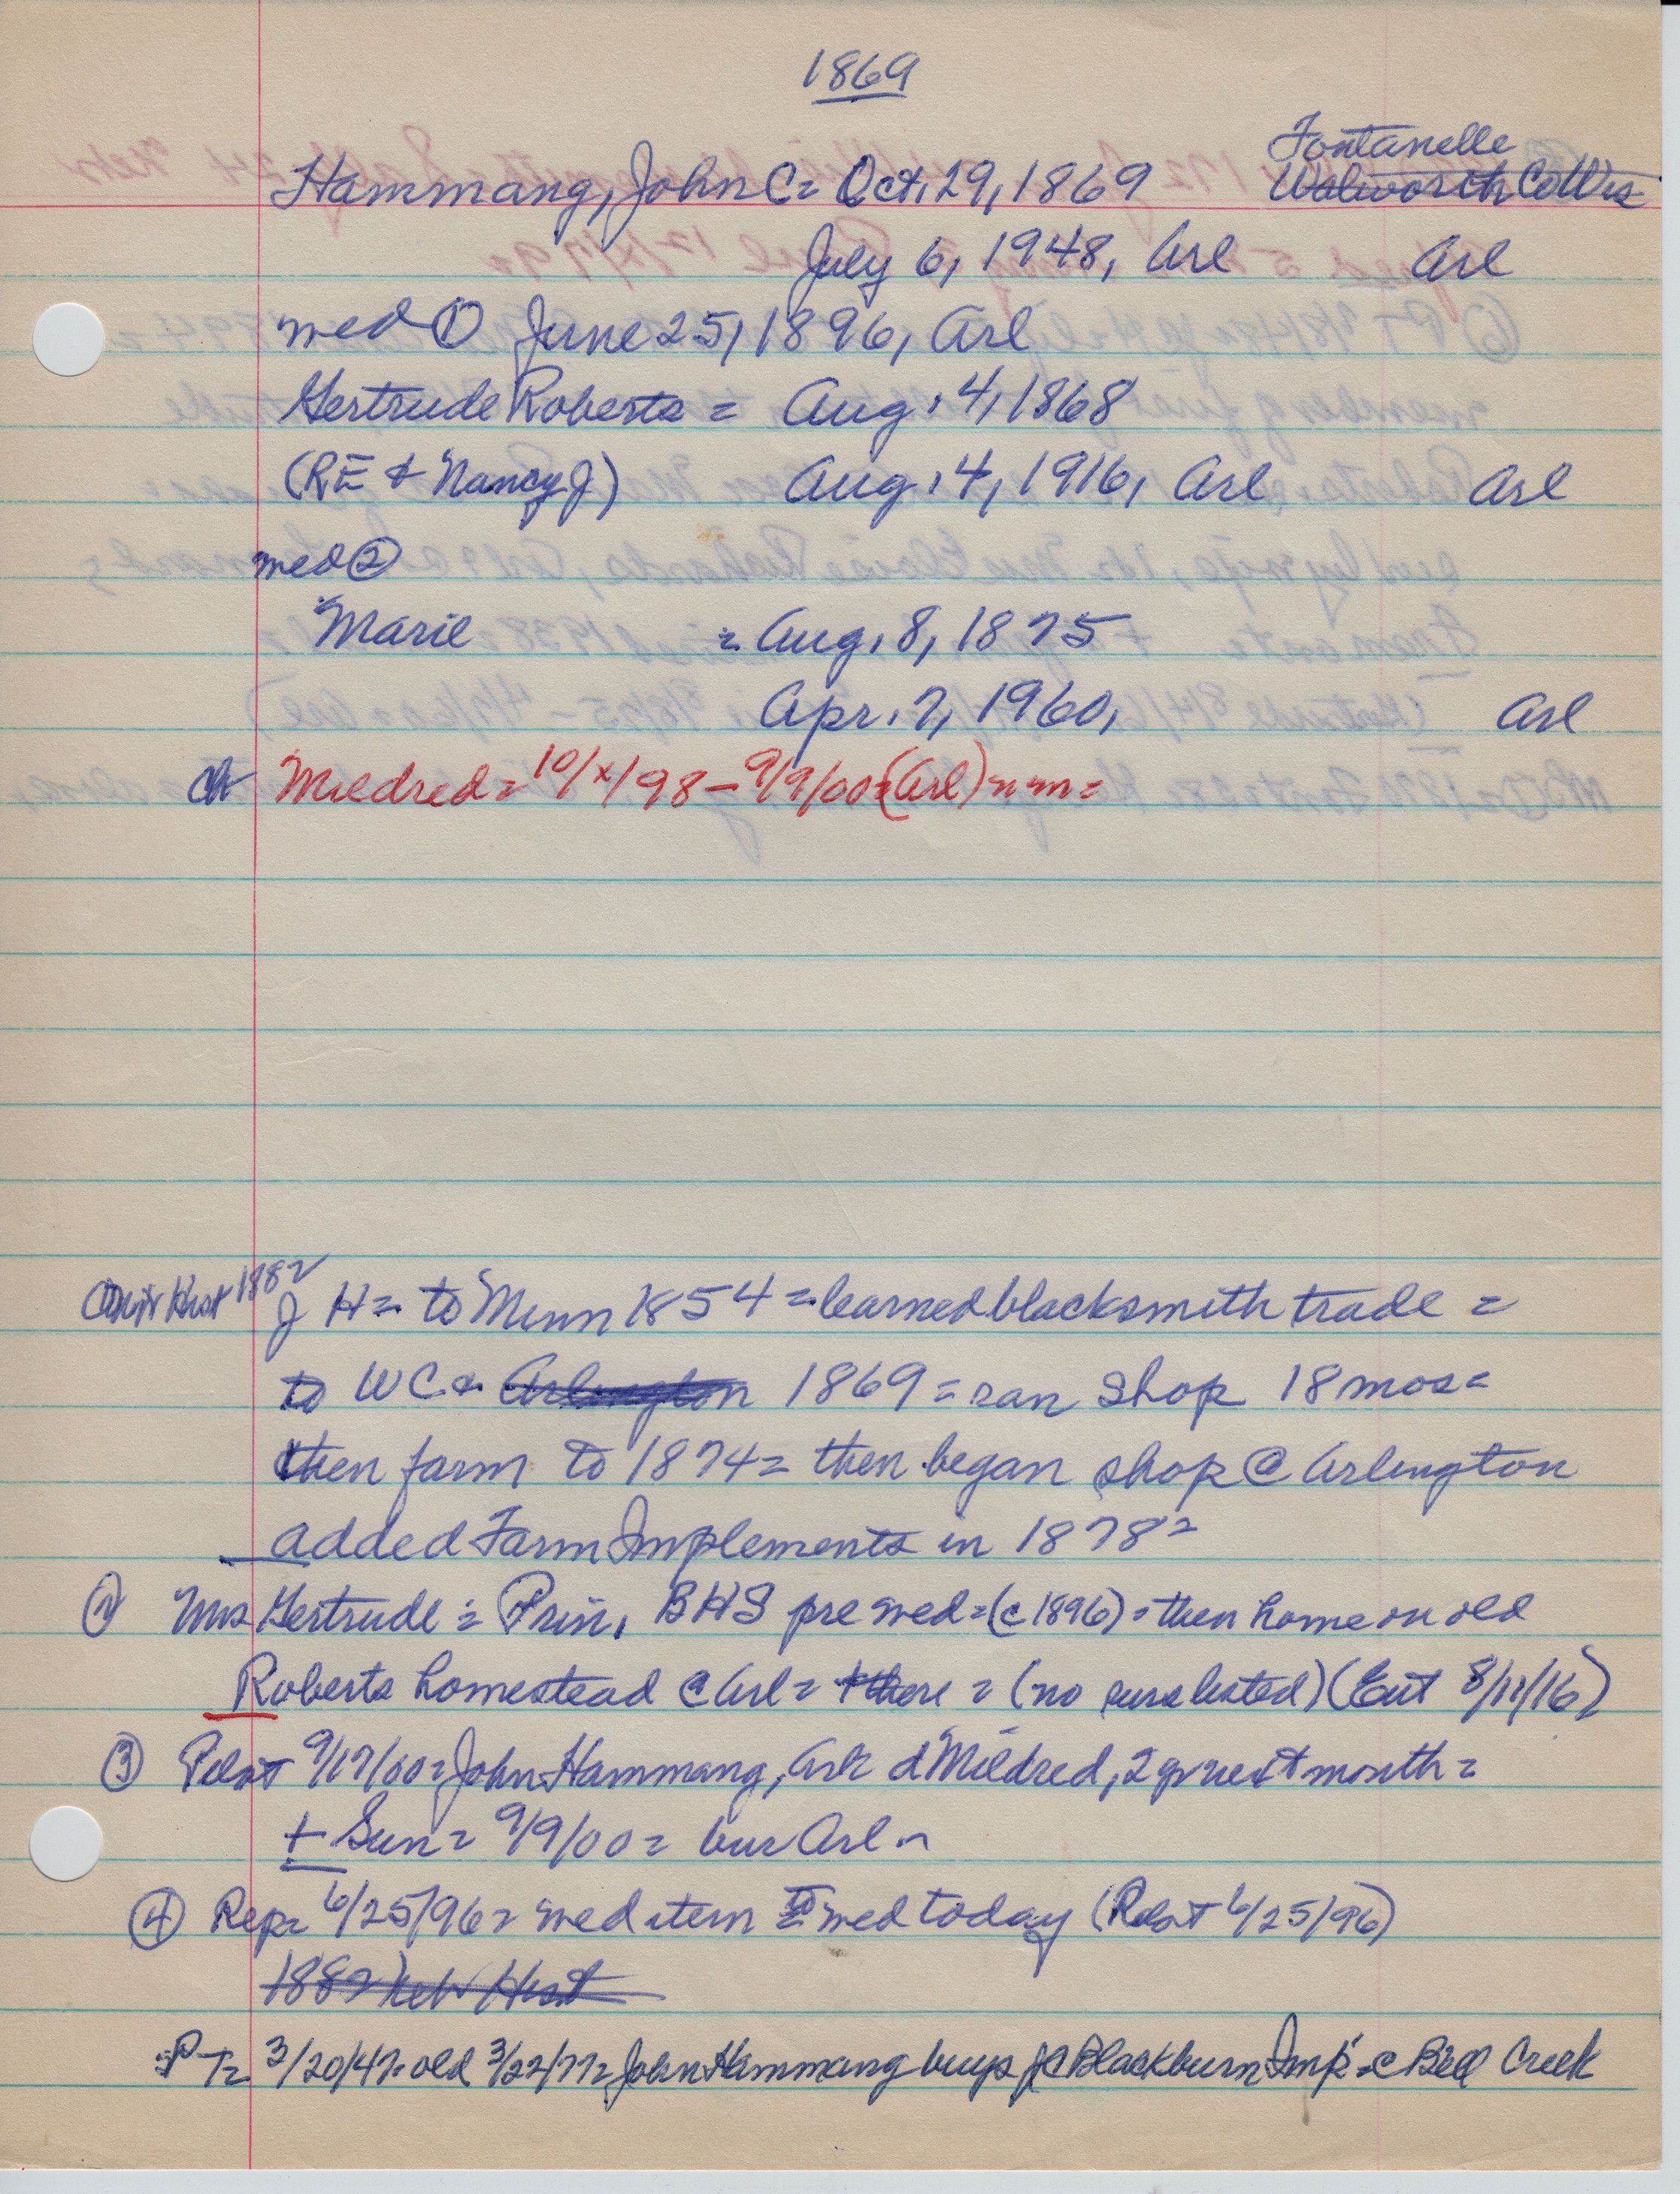 1869
Fontanelle
Hammang, John C = Oct. 29, 1869 Walworth Co Wis
July 6, 1948, Arl Arl
med ① June 25, 1896, Arl
Gertrude Roberts = Aug. 4, 1868
(RE & Nancy J) Aug. 4, 1916, Arl Arl
med ②
Marie = Aug. 8, 1875
Apr. 7, 1960, Arl
ch Mildred = 10/x/98 - 9/9/00 = (Arl) = nm =
Hist 1882 J H = to Minn 1854 = learned blacksmith trade =
to WC = Arlington 1869 = ran shop 18 mos =
then farm to 1874 = then began shop @ Arlington
added Farm Implements in 1878 =
② Mrs Gertrude = Prin, BHS pre med = (c 1896) = then home on old
Roberts homestead @ Arl = there = (no surs listed) (Ent 8/11/16)
③ Pilot 9/17/00 = John Hammang, Arl = d Mildred, 2 yr next month =
+ Sun = 9/9/00 = bur Arl =
④ Rep = 6/25/96 = med item = to med today (Pilot 6/25/96)
1882 Neb Hist
PT = 3/20/47 = old 3/22/77 = John Hammang buys JC Blackburn Imp = @ Bell Creek